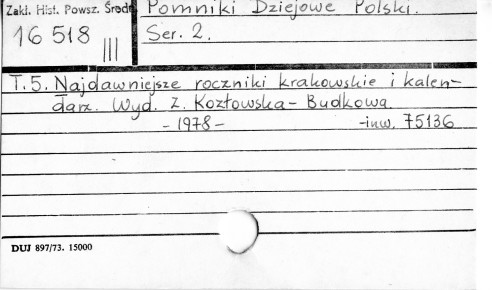 Zakł. Hist. Powsz. Średn
Pomniki Dziejowe Polski.
16 518 III
Ser. 2.
T. 5. Najdawniejsze roczniki krakowskie i kalen-
darz. Wyd. Z. Kozłowska-Budkowa
- 1978 -
-inw. 75136
DUJ 897/73. 15000